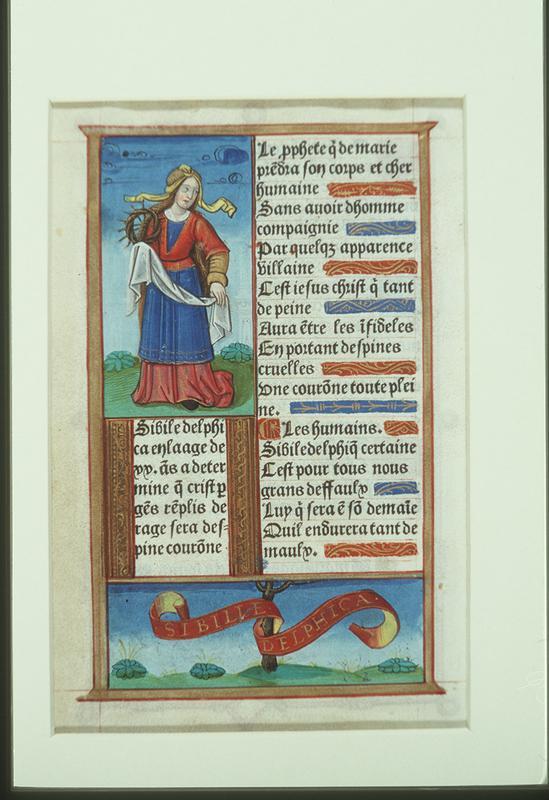 Le ꝓphete q̃ de marie
prẽdra son corps et cher
humaine
Sans auoir dhomme
compaignie
Par quelqꝫ apparence
villaine
Cest iesus christ q̃ tant
de peine
Aura ẽtre les ĩfideles
En portant despines
cruelles
Vne courõne toute plei
ne.
Les humains.
Sibile delphiq̃ certaine
Cest pour tous nous
grans deffaulx
Luy q̃ sera ẽ sõ demaĩe
Quil endurera tant de
maulx.
Sibile delphi
ca en laage de
xx. ãs a deter
mine q̃ crist p
gẽs rẽplis de
rage sera des-
pine courõne
SIBILLE
DELPHICA